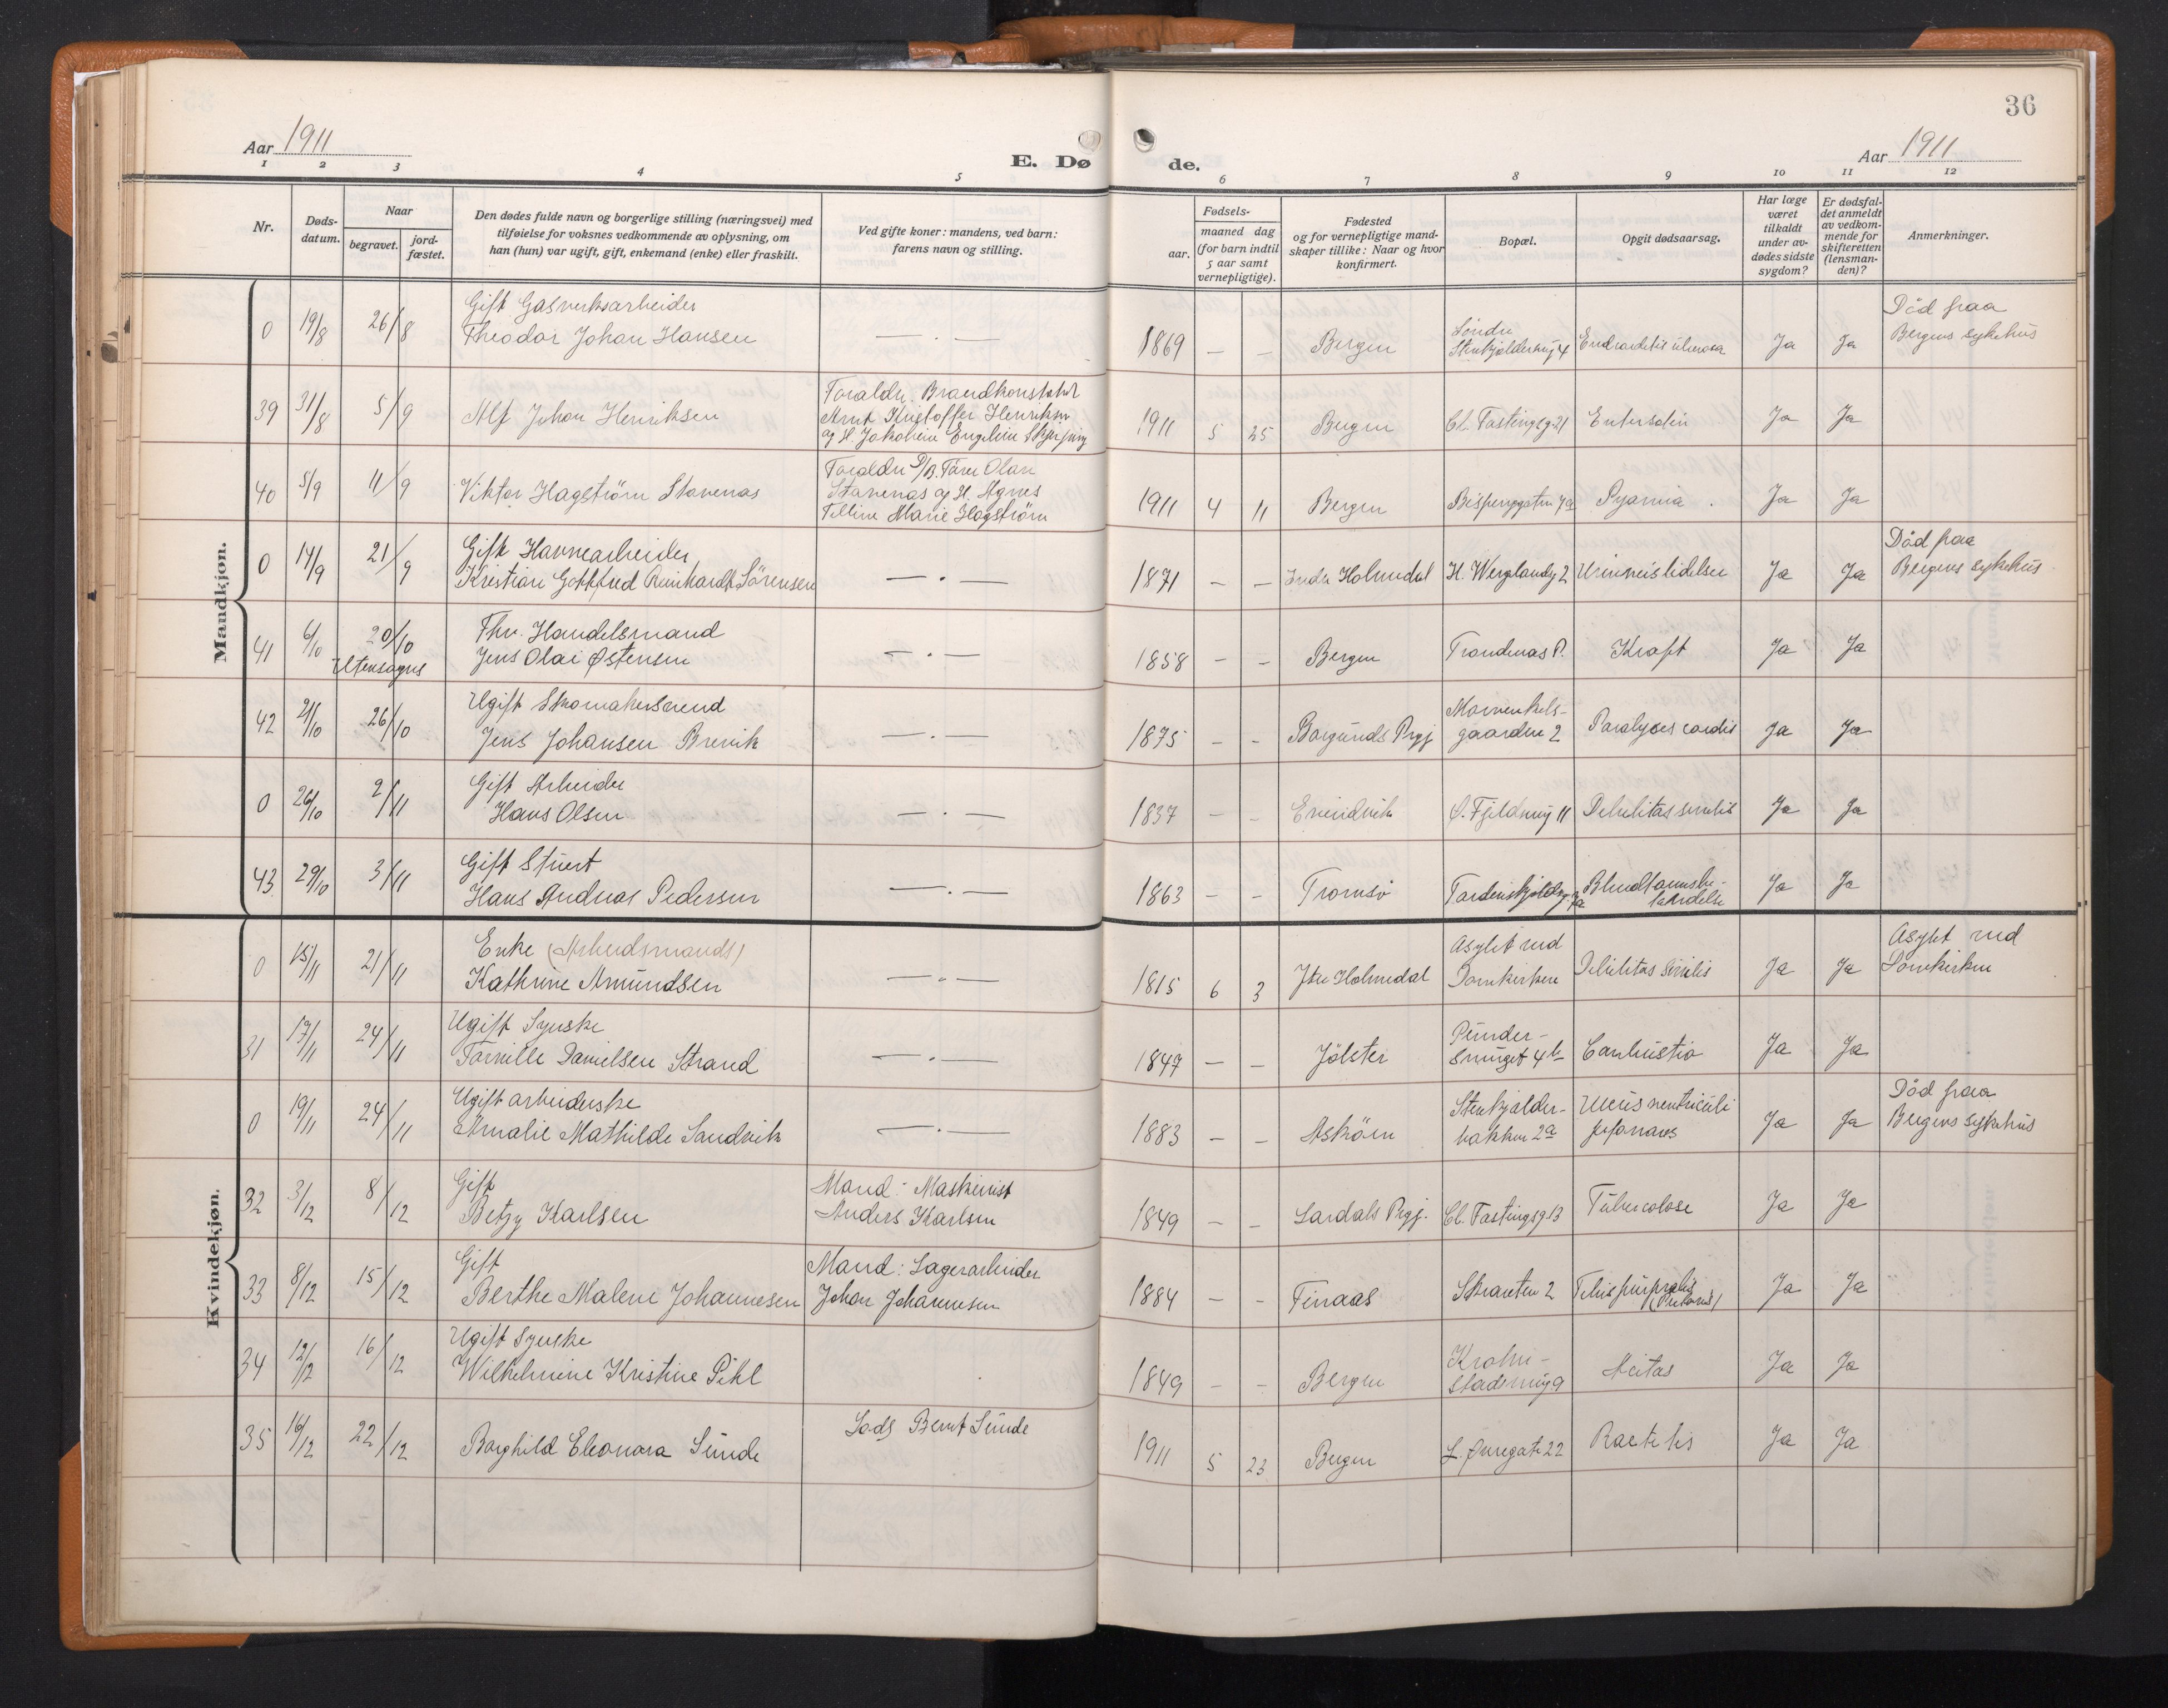 36
Aar 1911
E. Dø
de.
Aar 1911
1 2 3 4 5 6 7 8 9 10 11 12
Nr.
Døds-
datum.
Naar
begravet.
jord-
fæstet.
Den dødes fulde navn og borgerlige stilling (næringsvei) med
tilføielse for voksnes vedkommende av oplysning, om
han (hun) var ugift, gift, enkemand (enke) eller fraskilt.
Ved gifte koner: mandens, ved barn:
farens navn og stilling.
Fødsels-
aar.
maaned dag
(for barn indtil
5 aar samt
vernepligtige).
Fødested
og for vernepligtige mand-
skaper tillike: Naar og hvor
konfirmert.
Bopæl.
Opgit dødsaarsag.
Har læge
været
tilkaldt
under av-
dødes sidste
sygdom?
Er dødsfal-
det anmeldt
av vedkom-
mende for
skifteretten
(lensman-
den)?
Anmerkninger.
Mandkjøn.
0 19/8 26/8 Gift Gasverksarbeider
Theodor Johan Hansen
1869 Bergen Søndre
Stenkjelderveig 4 Ja Ja Død paa
Bergens sykehus
39 31/8 5/9 Alf Johan Henriksen
Foreldre. Brandkonstabel
Arnt Kristoffer Henriksen
og H. Jakobine Engeline
1911 5 25 Bergen Cl. Fastingsg. 21 Ja Ja
40 5/9 11/9 Viktor Hagstrøm Stavenas
Foreldre Olav
Stavenas og H. Agnes
Marie Hagstrøm
1911 4 11 Bergen Pyamia Ja Ja
0 14/9 21/9 Gift Havnearbeider
Kristian Gottfred Reinhardt Sørensen
1871 Indre Holmedal H. Werglandsg 2 Ja Ja Død paa
Bergens sykehus
41 6/10 20/10 Fhv. Handelsmand
Utensogns Jens Olai Østensen
1858 Bergen Trondenas P. Kræft Ja Ja
42 21/10 26/10 Ugift Skomakersvend
Jens Johansen Brevik
1875 Borgunds Prgj Marvenkels-
gaarden 2 Paralyses cordis Ja Ja
0 26/10 2/11 Gift Arbeider
Hans Olsen
1837 Evindvik Ø. Fjeldveig 11 Debilitas senilis Ja Ja
43 29/10 3/11 Gift Stuert
Hans Andreas Pedersen
1863 Tromsø Blindtarmsbe-
tændelse Ja Ja
Kvindekjøn.
0 15/11 21/11 Enke (Arbeidsmands)
Kathrine Amundsen
1815 6 3 Ytre Holmedal Asylet ved
Domkirken Debilitas senilis Ja Ja Asylet ved
Domkirken
31 17/11 24/11 Ugift Syerske
Danielsen Strand
1847 Jølster Pinder-
smuget 4b Combustio Ja Ja
0 19/11 24/11 Ugift arbeiderske
Amalie Mathilde Sandvik
1883 Askøen Stenkjelder-
bakken 2a Ulcus ventriculi
Ja Ja Død paa
Bergens sykehus
32 3/12 8/12 Gift
Betzy Karlsen
Mand: Maskinist
Anders Karlsen
1849 Lardals Prgj. Cl. Fastingsg. 13 Tuberculose Ja Ja
33 8/12 15/12 Gift
Berthe Malene Johannesen
Mand: Lagerarbeider
Johan Johannesen
1884 Finaas Skranten 2 Ja Ja
34 12/12 16/12 Ugift Syerske
Wilhelmine Kristine Pihl
1849 Bergen Krohn-
stadsveig 9 Ja Ja
35 16/12 22/12 Borghild Eleonora Sunde
Lods Bernt Sunde
1911 5 23 Bergen L. Øvregate 22 Ja Ja